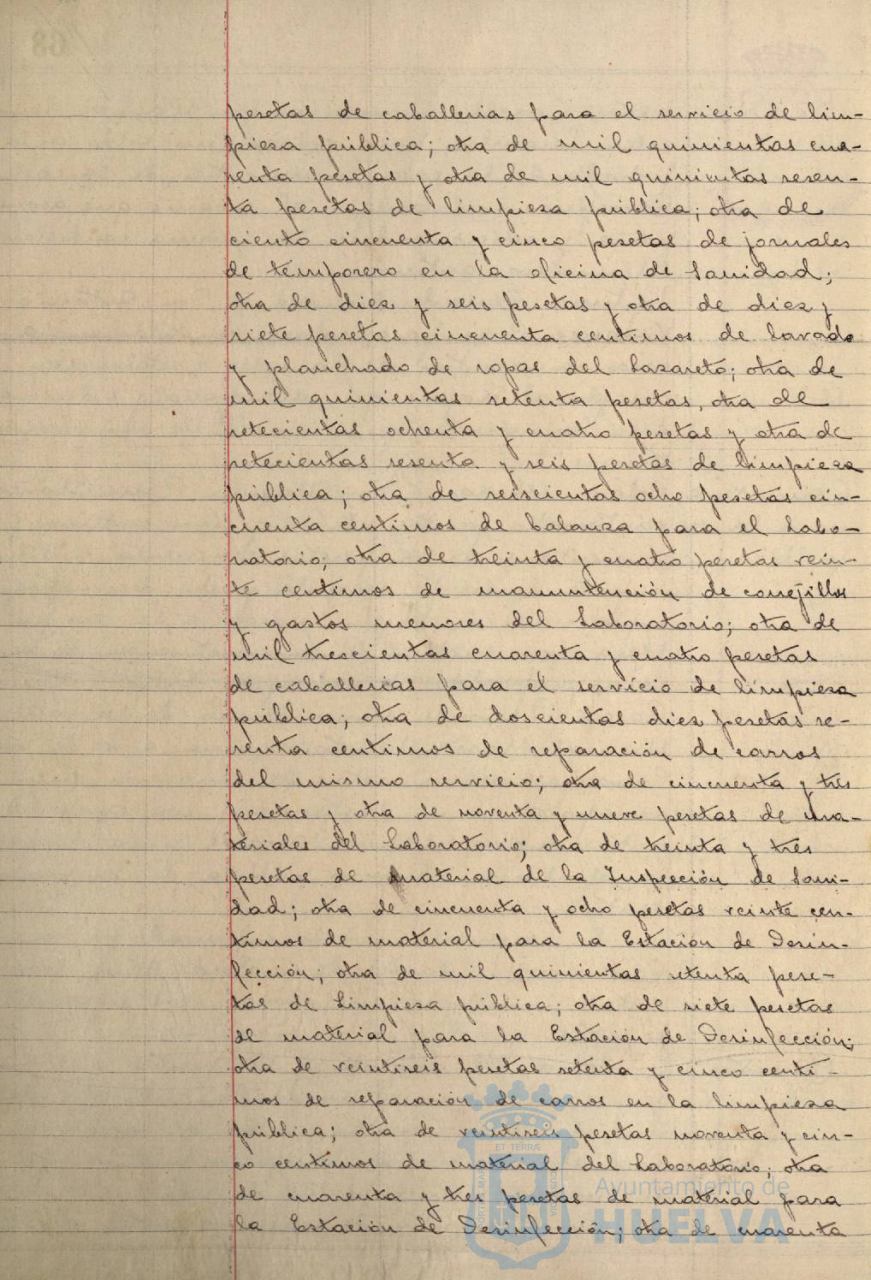 pesetas de caballerias para el servicio de lim-
pieza pública; otra de mil quinientas cua-
renta pesetas y otra de mil quinientas sesen-
ta pesetas de limpieza pública; otra de
ciento cincuenta y cinco pesetas de jornales
de temporero en la oficina de Sanidad;
otra de diez y seis pesetas y otra de diez y
siete pesetas cincuenta centimos de lavado
y planchado de ropas del Lazareto; otra de
mil quinientas setenta pesetas, otra de
setecientas ochenta y cuatro pesetas y otra de
setecientas sesenta y seis pesetas de limpieza
pública; otra de seiscientas ocho pesetas cin-
cuenta centimos de balanza para el Labo-
ratorio; otra de treinta y cuatro pesetas vein-
te centimos de manuntención de conejillos
y gastos menores del Laboratorio; otra de
mil trescientas cuarenta y cuatro pesetas
de caballerias para el servicio de limpieza
pública; otra de doscientas diez pesetas se-
senta centimos de reparación de carros
del mismo servicio; otra de cincuenta y tres
pesetas y otra de noventa y nueve pesetas de ma-
teriales del Laboratorio; otra de treinta y tres
pesetas de material de la Inspección de Sani-
dad; otra de cincuenta y ocho pesetas veinte cen-
timos de material para la Estación de Desin-
fección; otra de mil quinientas setenta pese-
tas de Limpieza pública; otra de siete pesetas
de material para la Estación de Desinfección;
otra de veintiseis pesetas setenta y cinco centi-
mos de reparación de carros en la limpieza
pública; otra de veintiseis pesetas noventa y cin-
co centimos de material del Laboratorio; otra
de cuarenta y tres pesetas de material para
la Estación de Desinfección; otra de cuarenta
Ayuntamiento de
HUELVA